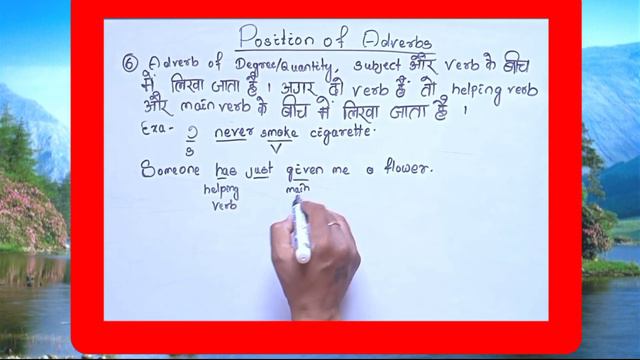 Position of Adverbs
⑥ Adverb of Degree/Quantity, Subject और verb के बीच
में लिखा जाता है । अगर दो verb हैं तो helping verb
और main verb के बीच में लिखा जाता है ।
Exa- I never smoke cigarette.
S V
Someone has just given me a flower.
helping main
verb